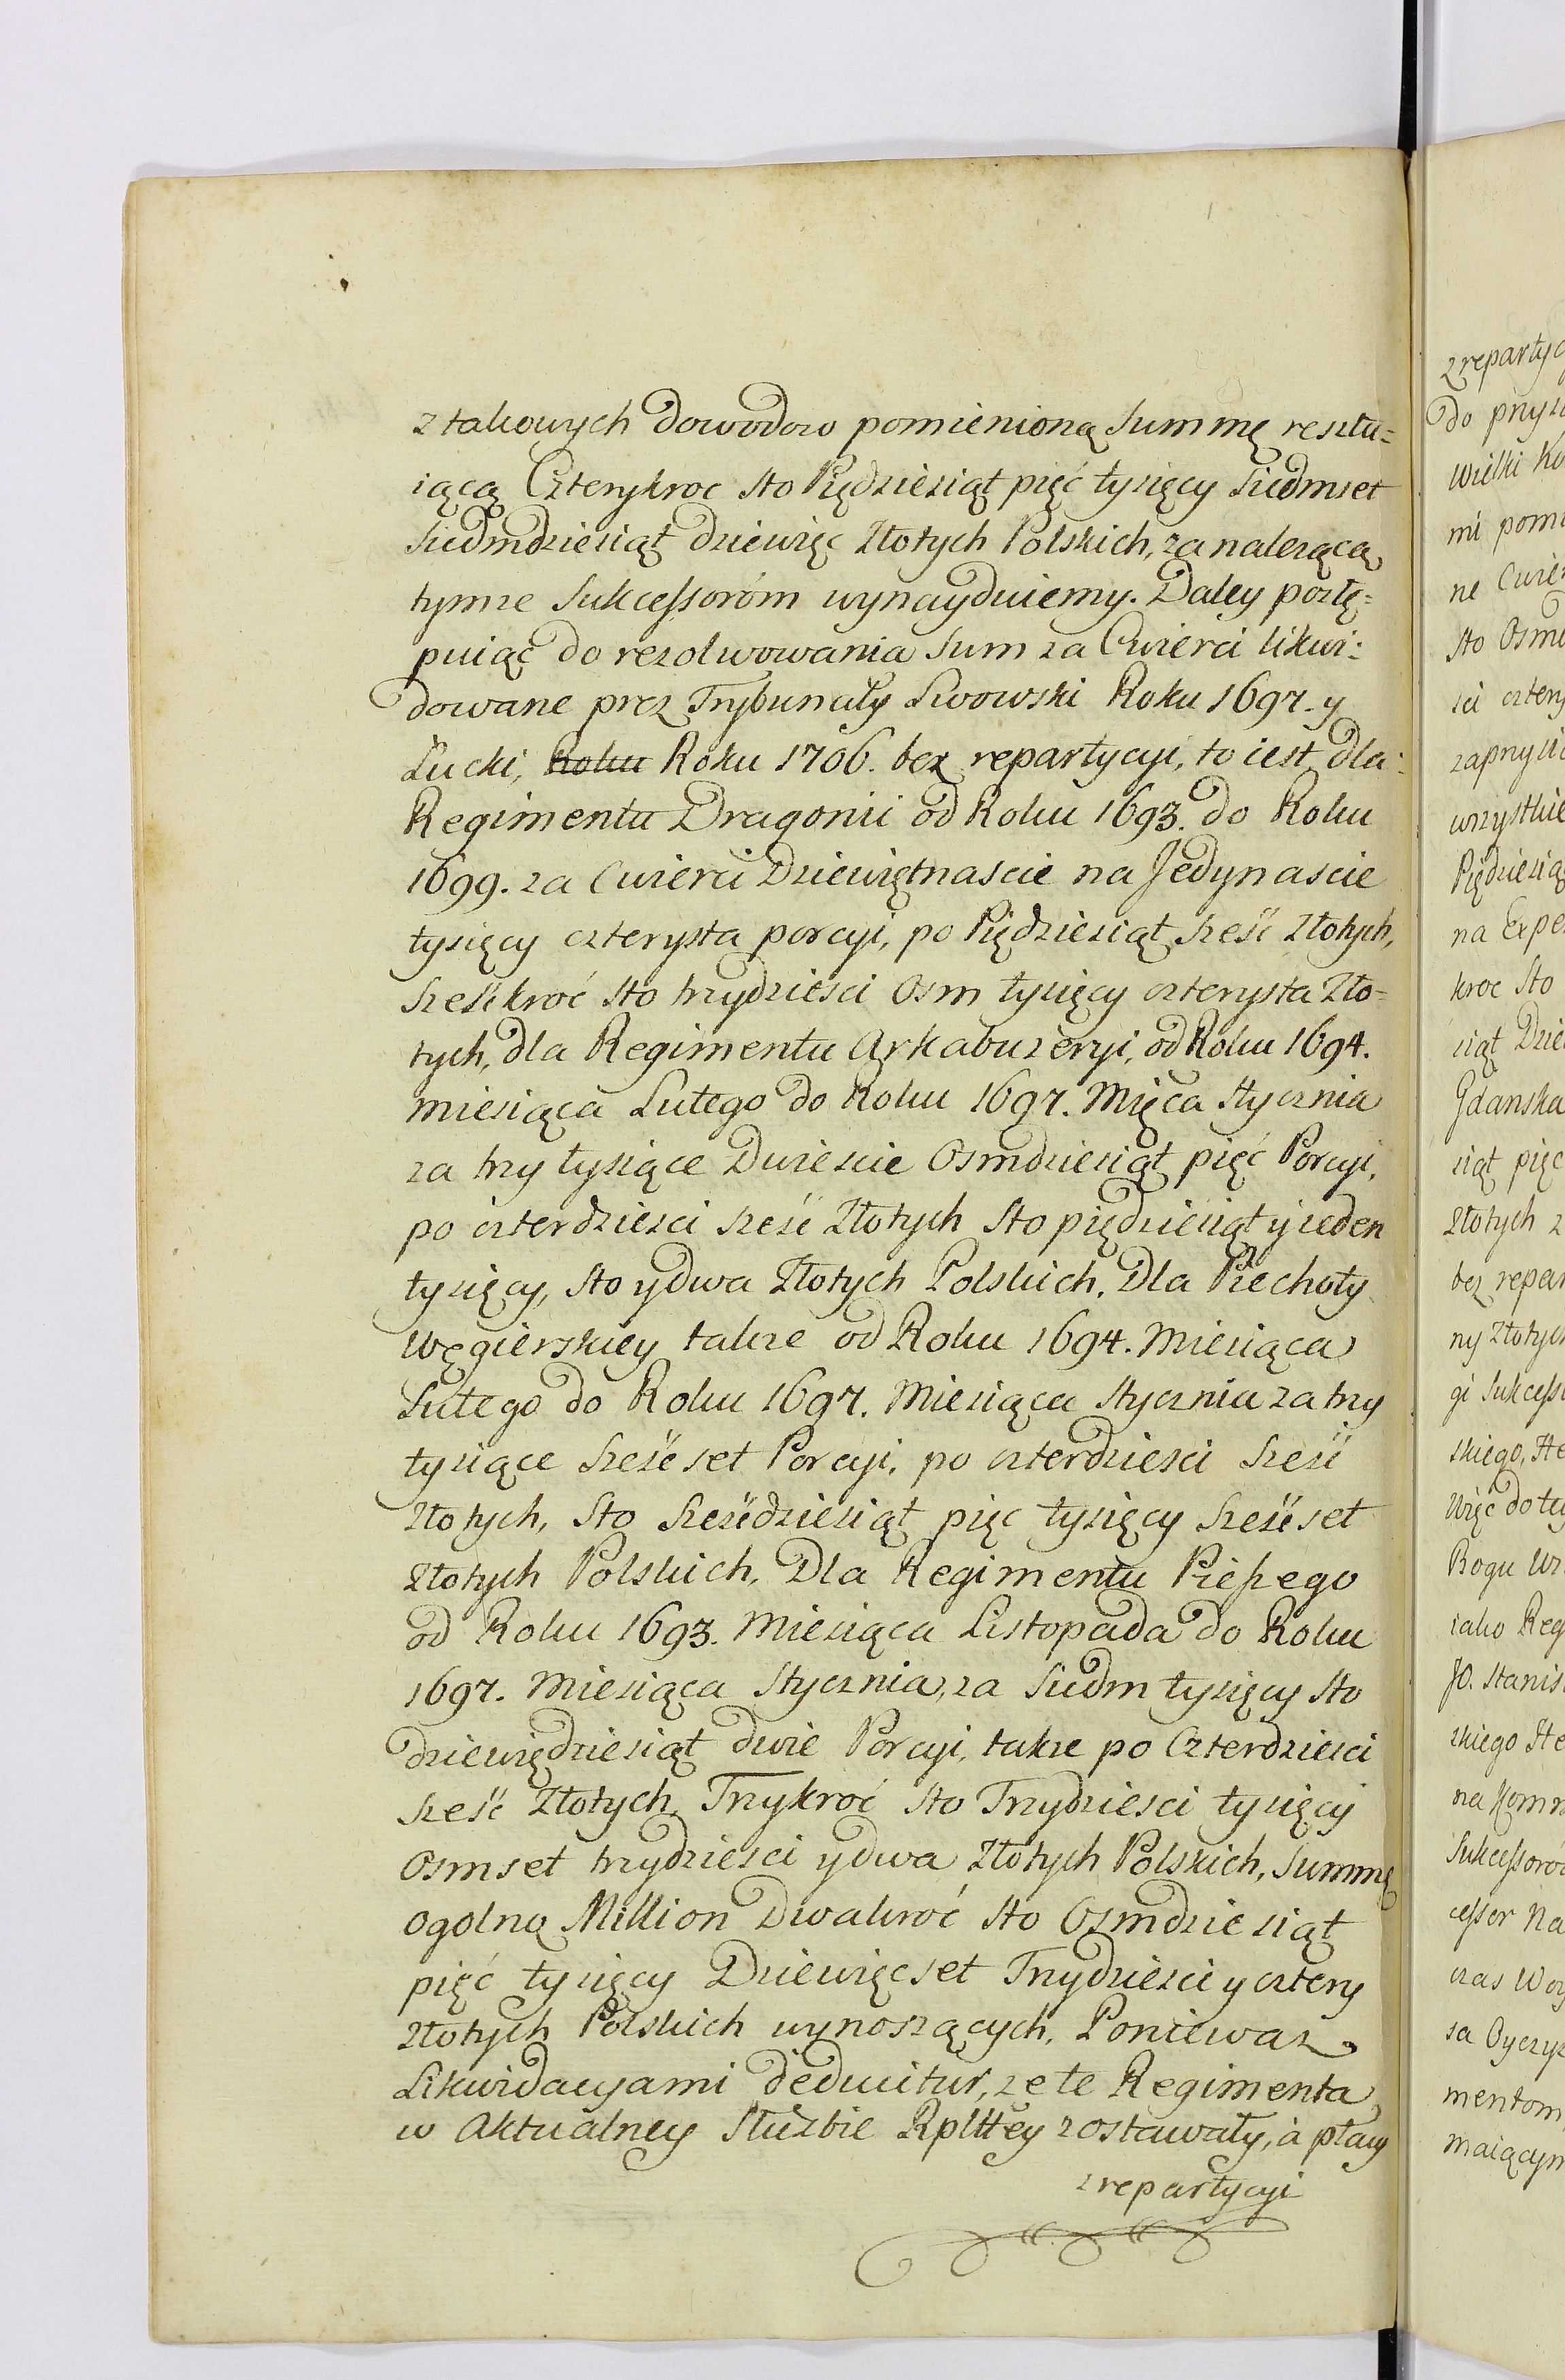 z takowych dowodow pomienioną Summę resztu=
iącą Czterykroc sto Piędziesiąt pięć tysięcy Siedmset
Siedmdziesiąt dziewięc Złotych Polskich, za nalezącą
tymze Sukcessoróm wynayduiemy. Daley postę=
puiąc do rezolwowania Sum za Cwierci likwi=
dowane prez Trybunały Lwowski Roku 1697. y
Łucki, Roku Roku 1706. bez repartycyi, to iest dla
Regimentu Dragonii od Roku 1693. do Roku
1699. za Cwierci Dziewiętnascie na Jedynascie
tysięcy czterysta porcyi, po Pięďziesiąt sześć Złotych,
sześćkroć sto trzydziesci Osm tysięcy czterysta Zło=
tych, dla Regimentu Arkabuzeryi, od Roku 1694.
miesiąca Lutego do Roku 1697. Mięca Stycznia
za trzy tysiące Dwiescie Osmdziesiąt pięć Porcyi,
po czterdziesci sześć Złotych Sto piędziesiąt y ieden
tysięcy, sto y dwa Złotych Polskich. Dla Piechoty
Węgierskiey takze od Roku 1694. Miesiąca
Lutego do Roku 1697. Miesiąca Stycznia za trzy
tysiące sześćset Porcyi, po czterdziesci sześć
Złotych, Sto sześćdziesiąt pięc tysięcy sześćset
Złotych Polskich, Dla Regimentu Pieszego
od Roku 1693. Miesiąca Listopada do Roku
1697. Miesiąca Stycznia, za Siedm tysięcy sto
dziewiędziesiąt dwie Porcyi, takze po Czterdziesci
sześć Złotych, Trzykroć sto Trzydziesci tysięcy
Osmset trzydziesci y dwa Złotych Polskich, Summę
ogolną Million Dwakroć sto Osmdziesiąt
pięć tysięcy Dziewięcset Trzydziesci y cztery
Złotych Polskich wynoszących, Poniewaz
Likwidacyami deducitur, ze te Regimenta
w Aktualney Służbie Rplttey zostawały, à płacy
z repartycyi
z repartyc
do przysz
Wielki Ko
mi pomi
ne Cwier
sto Osmd
sci cztery
zaprzysię
wszystkie
Piędziesią
na Expe
kroc sto
siąt Dzie
Gdanska
siąt pięć
Złotych z
bez repar
ny Złotych
gi Sukcess
skiego, He
Więc do ty
Rogu
iako Reg
JO. Stanis
skiego He
na Kom
Sukcessorow
cessor Na
czas Woy
sa Oyczyz
mentom
maiącym